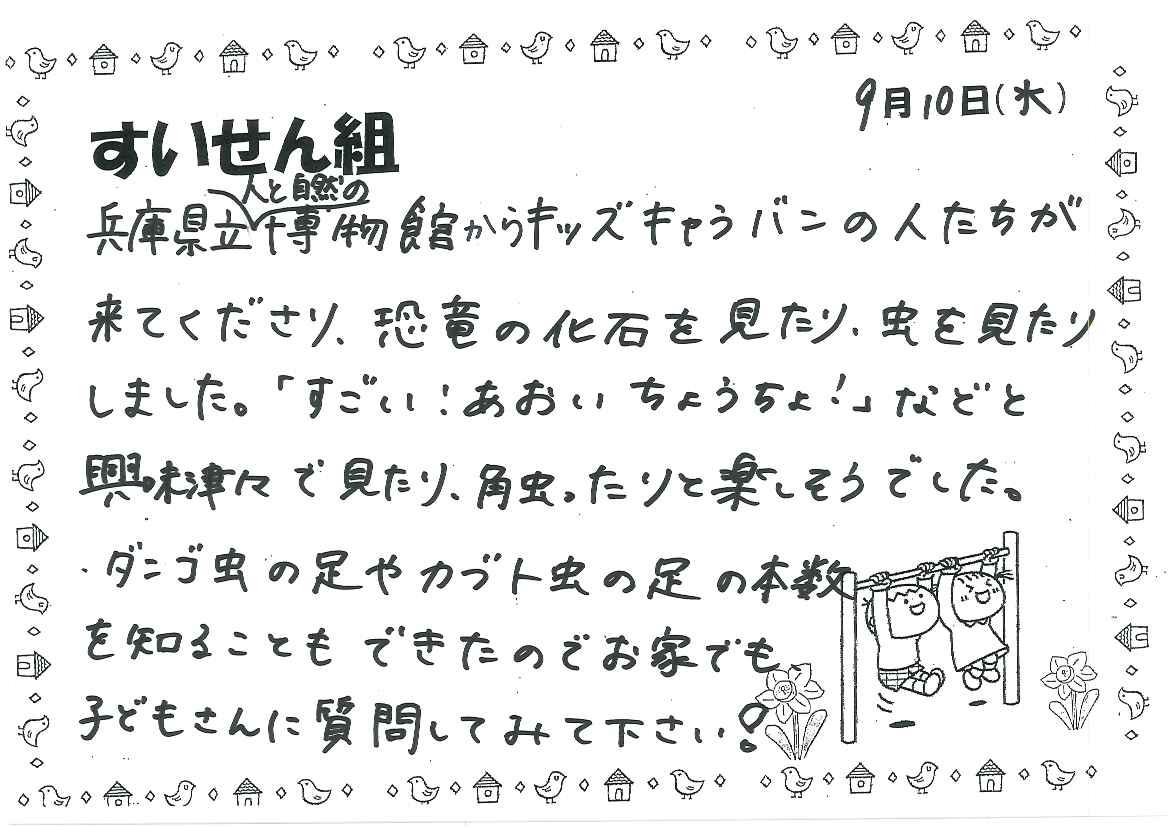 9月10日(水)
すいせん組
人と自然の
兵庫県立博物館からキッズキャラバンの人たちが
来てくださり、恐竜の化石を見たり、虫を見たり
しました。「すごい!あおいちょうちょ!」などと
興味津々で見たり、触ったりと楽しそうでした。
・ダンゴ虫の足やカブト虫の足の本数
を知ることもできたのでお家でも、
子どもさんに質問してみて下さい!